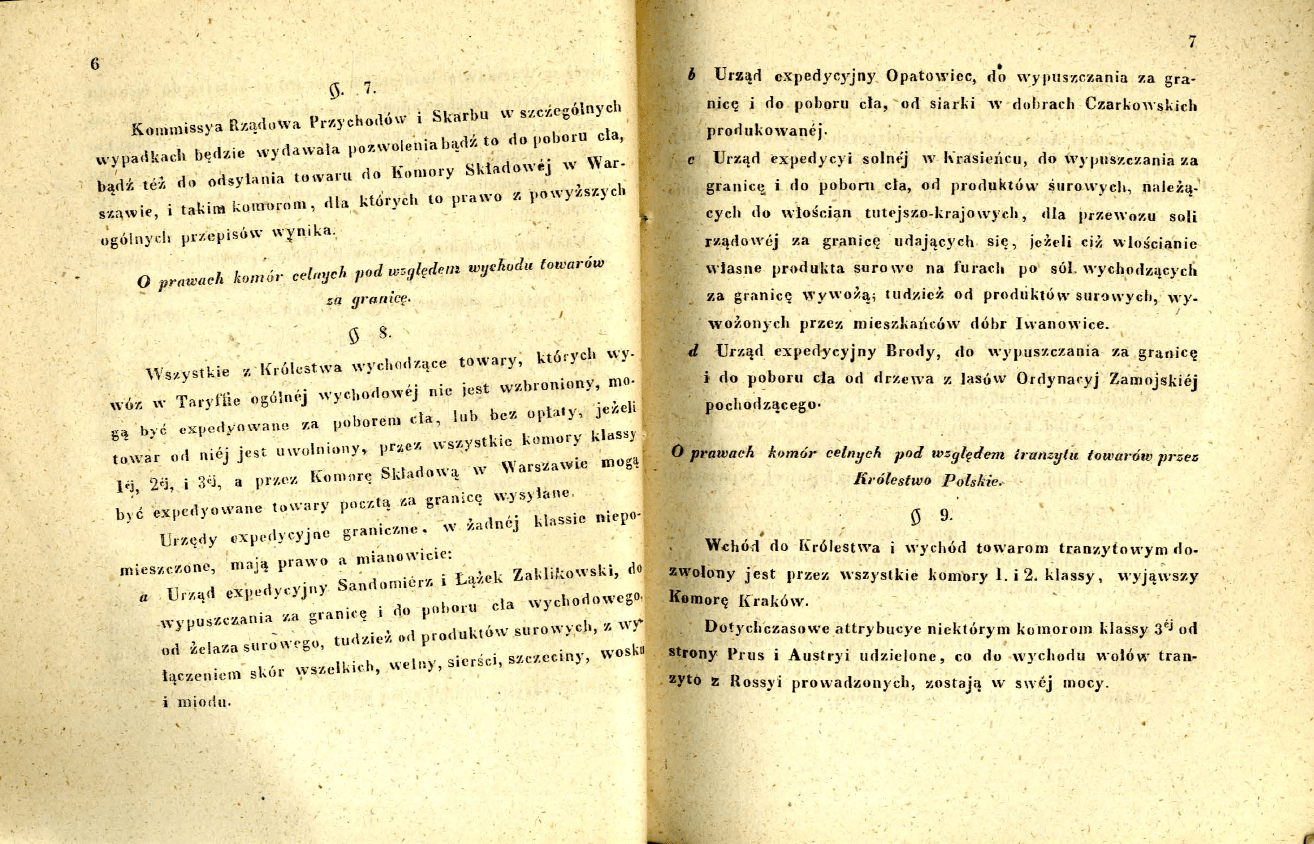 6
§. 7.
Kommissya Rządowa Przychodów i Skarbu w szczególnych
wypadkach będzie wydawała pozwolenia bądź to do poboru cła,
bądź téż do odsyłania towaru do Komory Składowéj w War-
szawie, i takim komorom, dla których to prawo z powyższych
ogólnych przepisów wynika.
O prawach komór celnych pod względem wychodu towarów
za granicę.
§ 8.
Wszystkie z Królestwa wychodzące towary, których wy-
wóz w Taryffie ogólnéj wychodowéj nie jest wzbroniony, mo-
gą być expedyowane za poborem cła, lub bez opłaty, jeżeli
towar od niéj jest uwolniony, przez wszystkie komory klassy
1éj, 2éj, i 3éj, a przez Komorę Składową w Warszawie mogą
być expedyowane towary pocztą za granicę wysyłane.
Urzędy expedycyjne graniczne, w żadnéj klassie niepo-
mieszczone, mają prawo a mianowicie:
a Urząd expedycyjny Sandomiérz i Łążek Zaklikowski, do
wypuszczania za granicę i do poboru cła wychodowego,
od żelaza surowego, tudzież od produktów surowych, z wy-
łączeniem skór wszelkich, wełny, sierści, szczeciny, wosku
i miodu.
7
b Urząd expedycyjny Opatowiec, do wypuszczania za gra-
nicę i do poboru cła, od siarki w dobrach Czarkowskich
produkowanéj.
c Urząd expedycyi solnéj w Krasieńcu, do wypuszczania za
granicę i do poboru cła, od produktów surowych, należą-
cych do włościan tutejszo-krajowych, dla przewozu soli
rządowéj za granicę udających się, jeżeli ciż włościanie
własne produkta surowe na furach po sól wychodzących
za granicę wywożą; tudzież od produktów surowych, wy-
wożonych przez mieszkańców dóbr Iwanowice.
d Urząd expedycyjny Brody, do wypuszczania za granicę
i do poboru cła od drzewa z lasów Ordynacyj Zamojskiéj
pochodzącego.
O prawach komór celnych pod względem tranzytu towarów przez
Królestwo Polskie.
§ 9.
Wchód do Królestwa i wychód towarom tranzytowym do-
zwolony jest przez wszystkie komory 1. i 2. klassy, wyjąwszy
Komorę Kraków.
Dotychczasowe attrybucye niektórym komorom klassy 3éj od
strony Prus i Austryi udzielone, co do wychodu wołów tran-
zyto z Rossyi prowadzonych, zostają w swéj mocy.